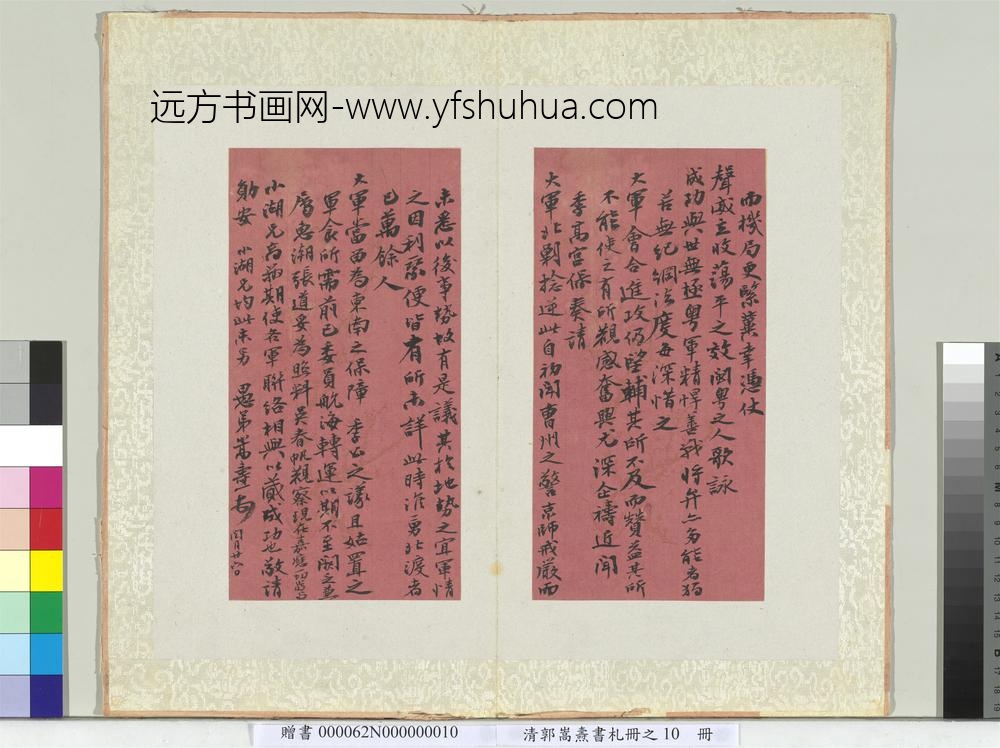 远方书画网-www.yfshuhua.com
而機局更緊冀幸憑仗
聲威立收蕩平之效閩粵之人歌詠
成功與世無極粵軍精悍善戰將弁亦多能者獨
苦無紀綱法度每深惜之
大軍會合進攻仍望輔其所不及而贊益其所
不能使之有所觀感奮興尤深企禱近聞
季高宮保奏請
大軍北剿捻逆此自初聞曹州之警京師戒嚴而
未悉以後事勢故有是議其於地勢之宜軍情
之因利乘便皆有所未詳此時淮勇北渡者
已萬餘人
大軍當西為東南之保障 季公之議且姑置之
軍食所需前已委員航海轉運以期不至闕乏並
屬惠潮張道妥為照料吳春帆觀察現在嘉應
小湖兄高 期使各軍聯絡相與以蕆成功也敬請
勛安 小湖兄均此未另 愚弟嵩燾
閏月廿六日
贈書 000062N000000010
清郭嵩燾書札冊之 10 冊